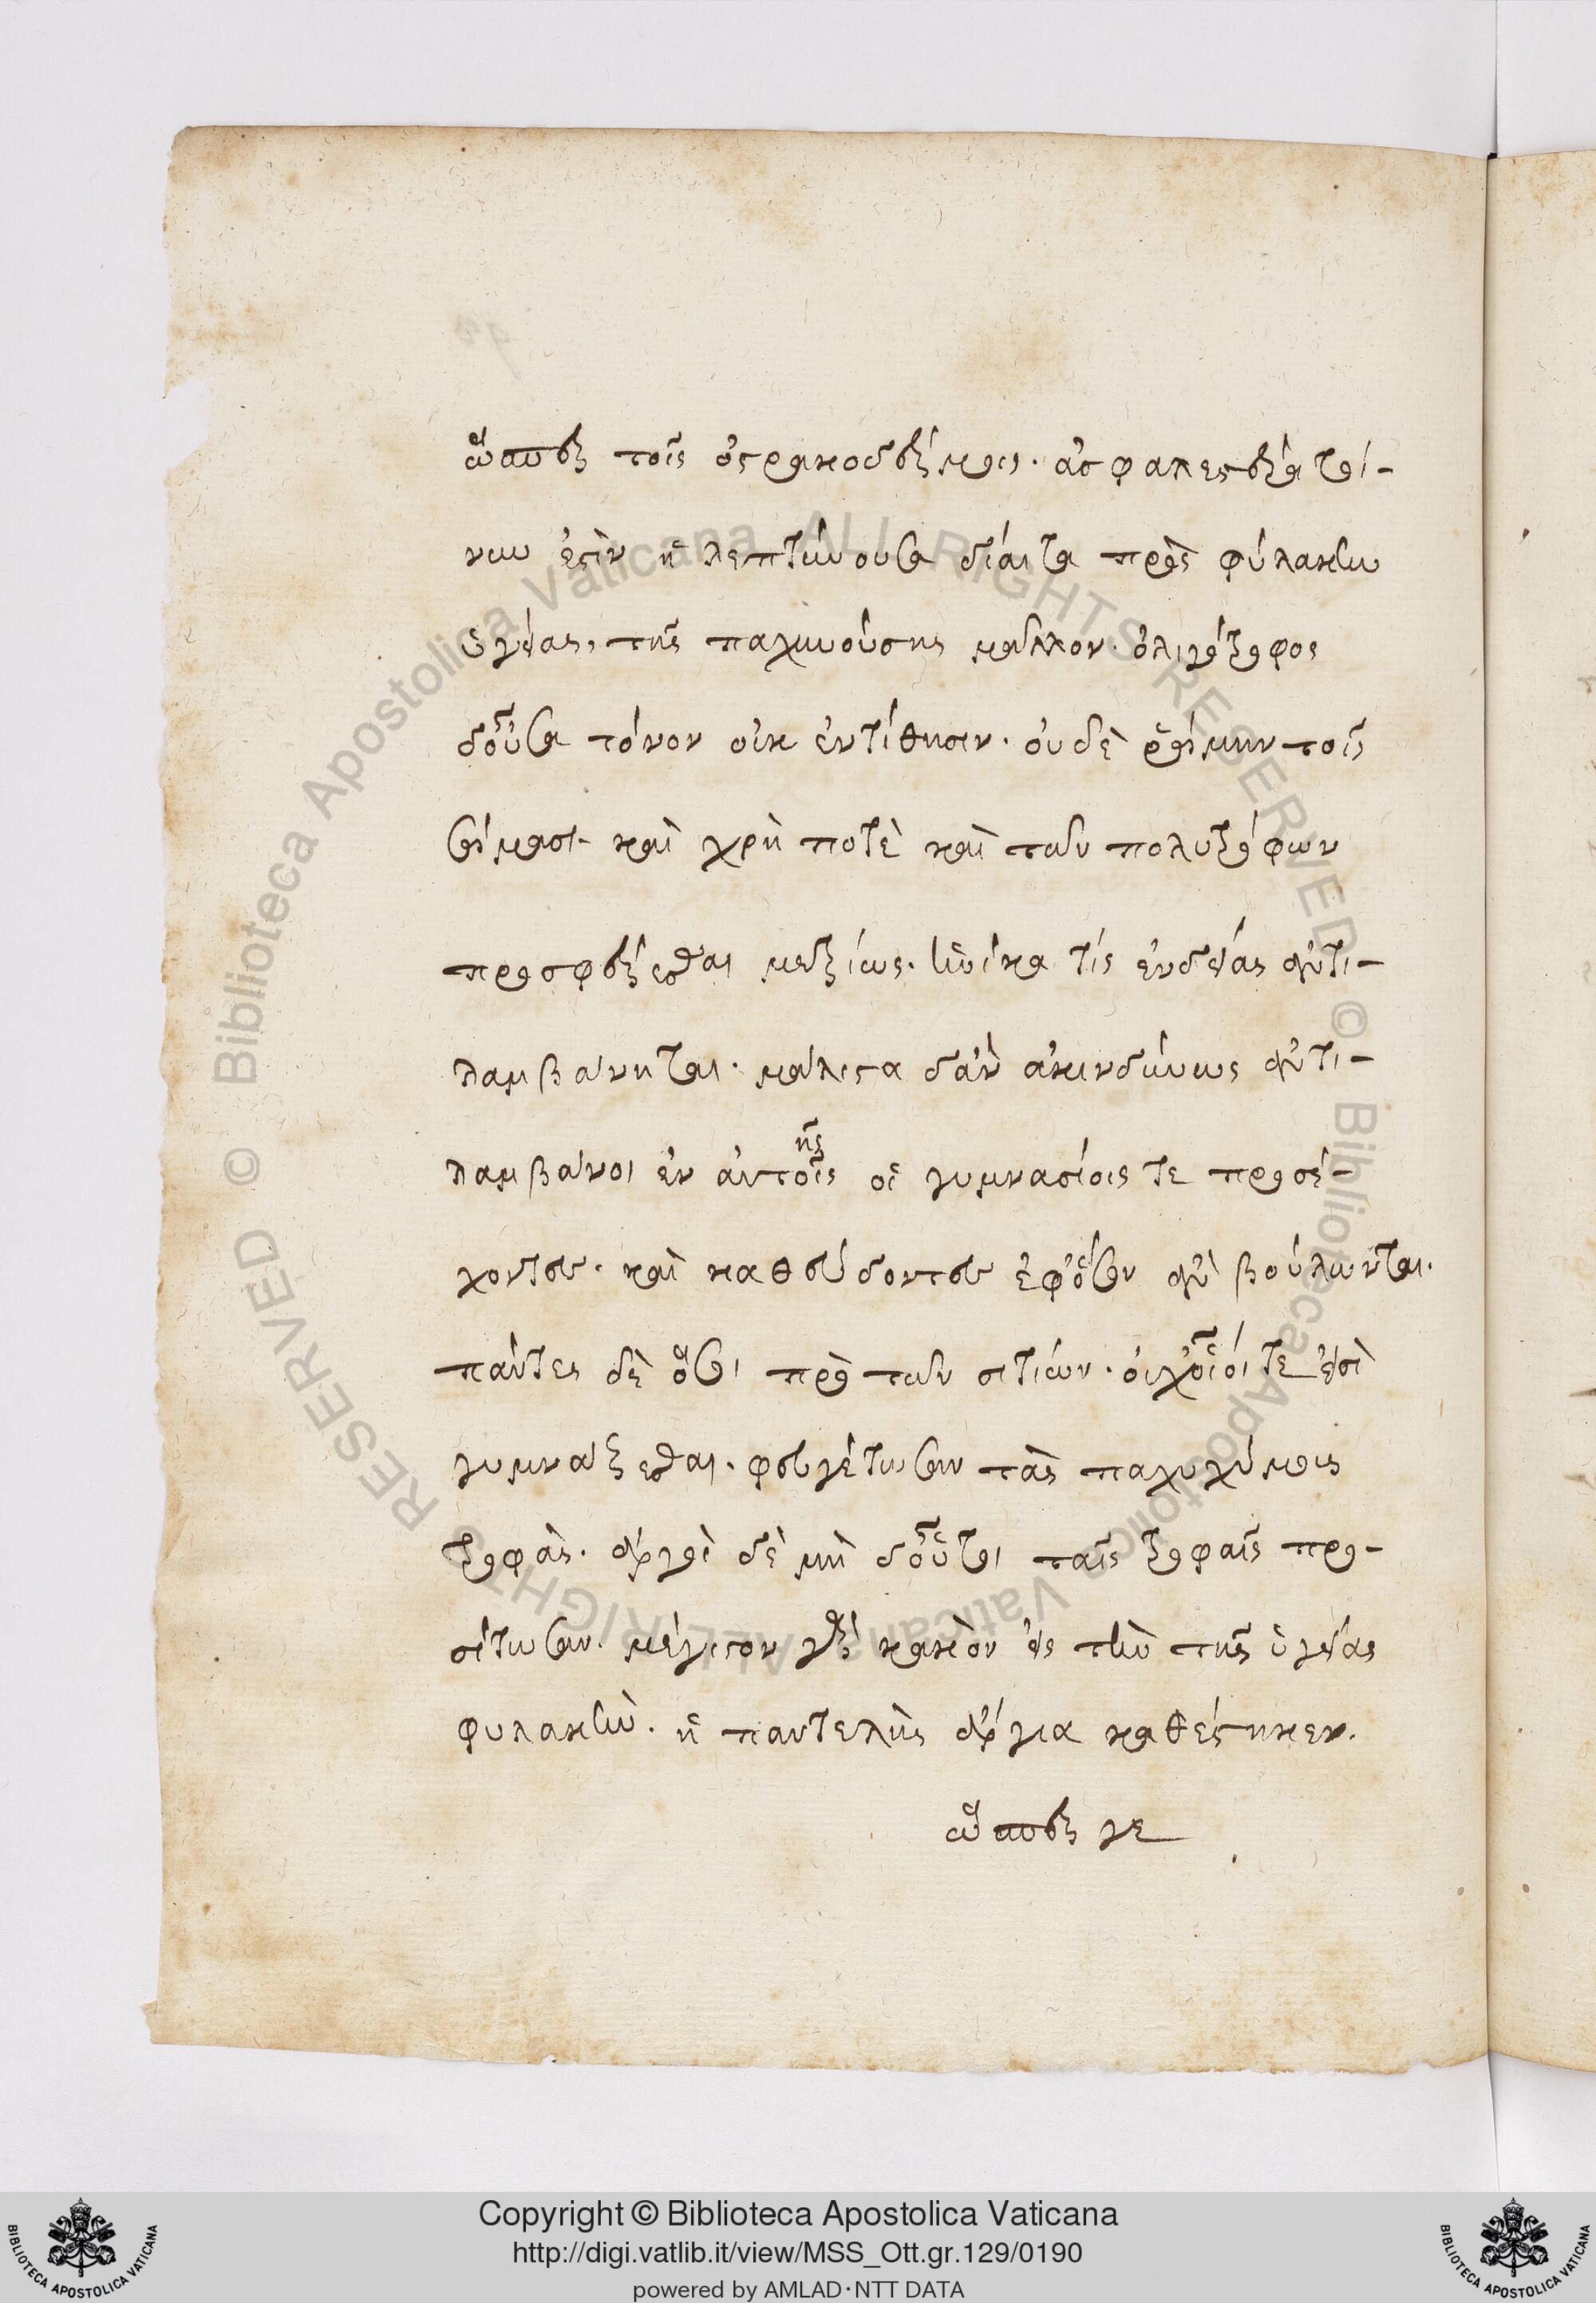 ὥσπερ τοῖς ὀστρακοδέρμοις. ἀσφαλεστέρα τοί-
νυν ἐστὶν ἡ λεπτύνουσα δίαιτα πρὸς φυλακὴν
ὑγείας, τῆς παχυνούσης μᾶλλον. ὀλιγότροφος
δ' οὖσα τόνον οὐκ ἐντίθησιν. οὐδὲ ῥώμην τοῖς
σώμασι. καὶ χρὴ ποτὲ καὶ τῶν πολυτρόφων
προσφέρεσθαι μετρίως. ἡνίκα τίς ἐνδείας ἀντι-
λαμβάνηται. μάλιστα δ' ἂν ἀκινδύνως ἀντι-
λαμβάνοι ἐν αὐτοῖς οἱ γυμνασίοις τε προσέ-
ῆς
χοντες. καὶ καθεύδοντες ἐφ' ὅσον ἂν βούλωνται.
πάντες δὲ ὅσοι πρὸ τῶν σιτίων. οὐχ οἷοί τε εἰσὶ
γυμνάζεσθαι. φευγέτωσαν τὰς παχυχύμους
τροφάς. ἀργοὶ δὲ μὴ δ' οὗτοι ταῖς τροφαῖς προ-
σίτωσαν. μέγιστον γὰρ κακὸν εἰς τὴν τῆς ὑγείας
φυλακὴν. ἡ παντελὴς ἀργία καθέστηκεν.
ὥσπερ γε
Copyright © Biblioteca Apostolica Vaticana
http://digi.vatlib.it/view/MSS_Ott.gr.129/0190
powered by AMLAD·NTT DATA
BIBLIOTECA APOSTOLICA VATICANA
BIBLIOTECA APOSTOLICA VATICANA
© Biblioteca Apostolica Vaticana ALL RIGHTS RESERVED © Biblioteca Apostolica Vaticana ALL RIGHTS RESERVED